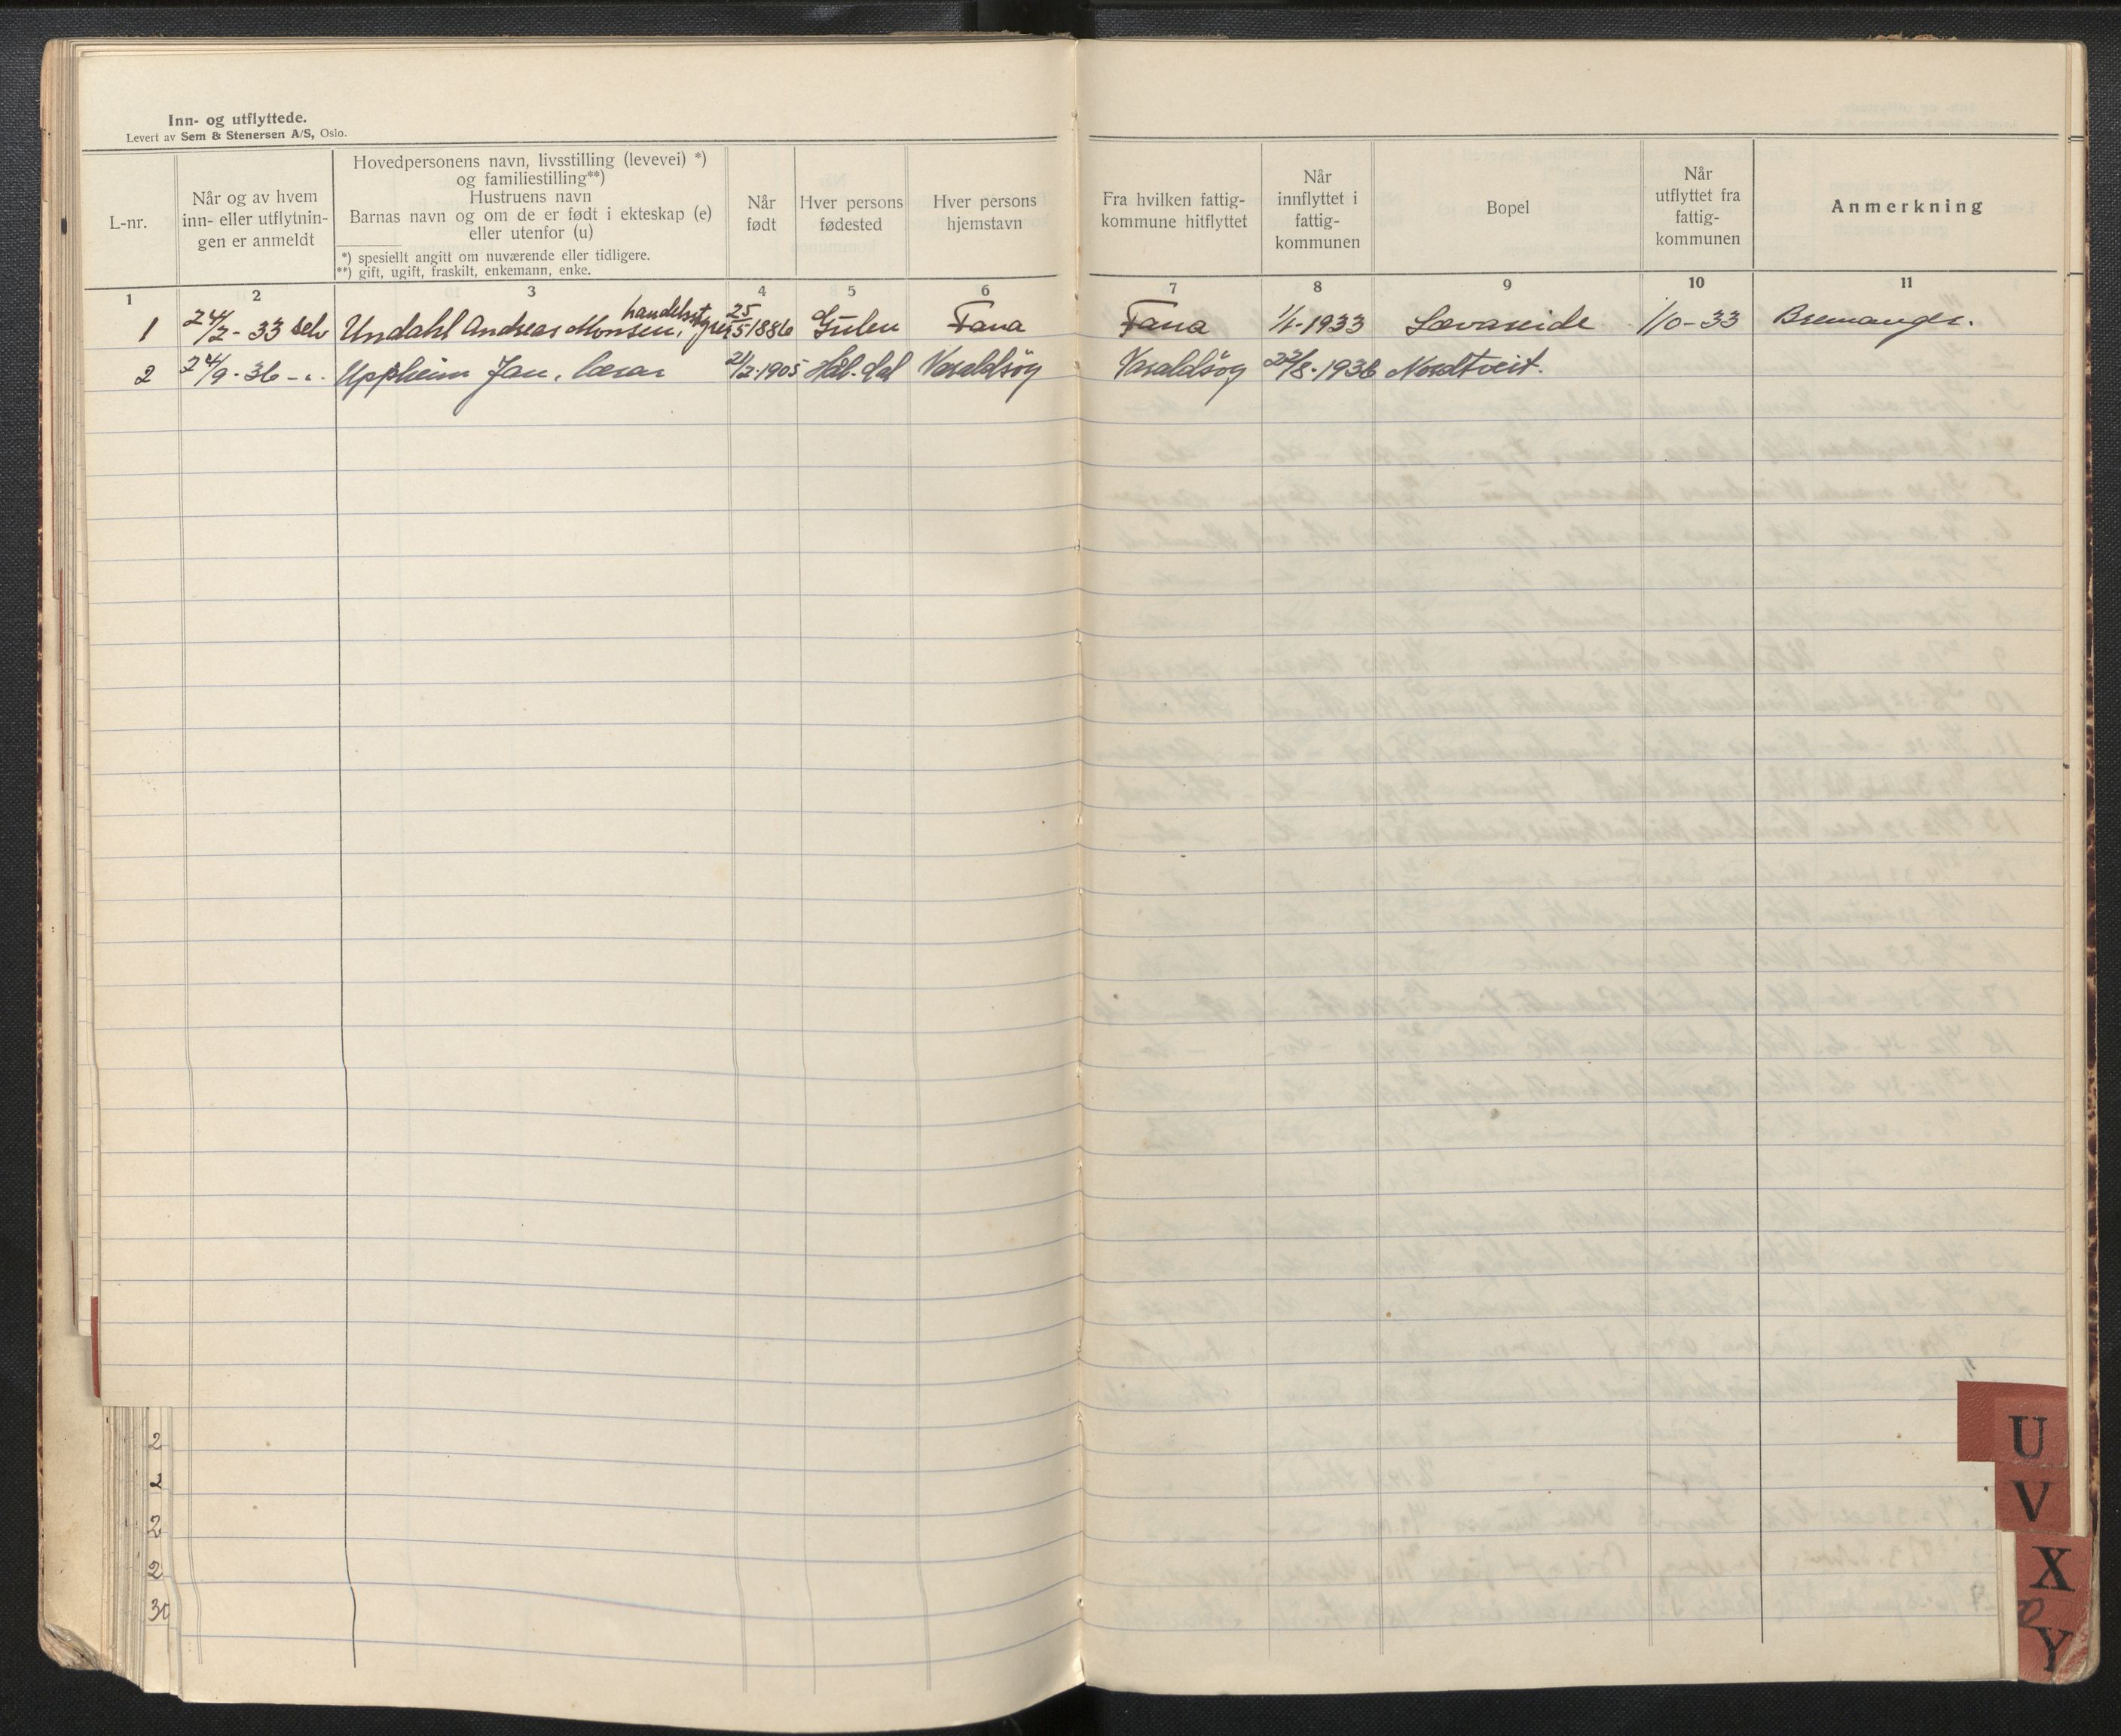 Inn- og utflyttede.
Levert av Sem & Stenersen A/S, Oslo.
L-nr.
Når og av hvem
inn- eller utflytnin-
gen er anmeldt
Hovedpersonens navn, livsstilling (levevei) *)
og familiestilling**)
Hustruens navn
Barnas navn og om de er født i ekteskap (e)
eller utenfor (u)
*) spesiellt angitt om nuværende eller tidligere.
**) gift, ugift, fraskilt, enkemann, enke.
Når
født
Hver persons
fødested
Hver persons
hjemstavn
Fra hvilken fattig-
kommune hitflyttet
Når
innflyttet i
fattig-
kommunen
Bopel
Når
utflyttet fra
fattig-
kommunen
Anmerkning
1 2 3 4 5 6 7 8 9 10 11
1 24/2 - 33 selv Undahl Andreas Monsen, handelsstyrer 25/5 1886 Gulen Fana Fana 1/1-1933 Sævareide 1/10-33 Bremanger.
2 24/9 - 36 - " - Uppheim Jan, lærer 21/2-1905 Hål.dal Varaldsøy Varaldsøy 22/8-1936 Nordtveit.
2
2
2
2
30
U
V
X
Y